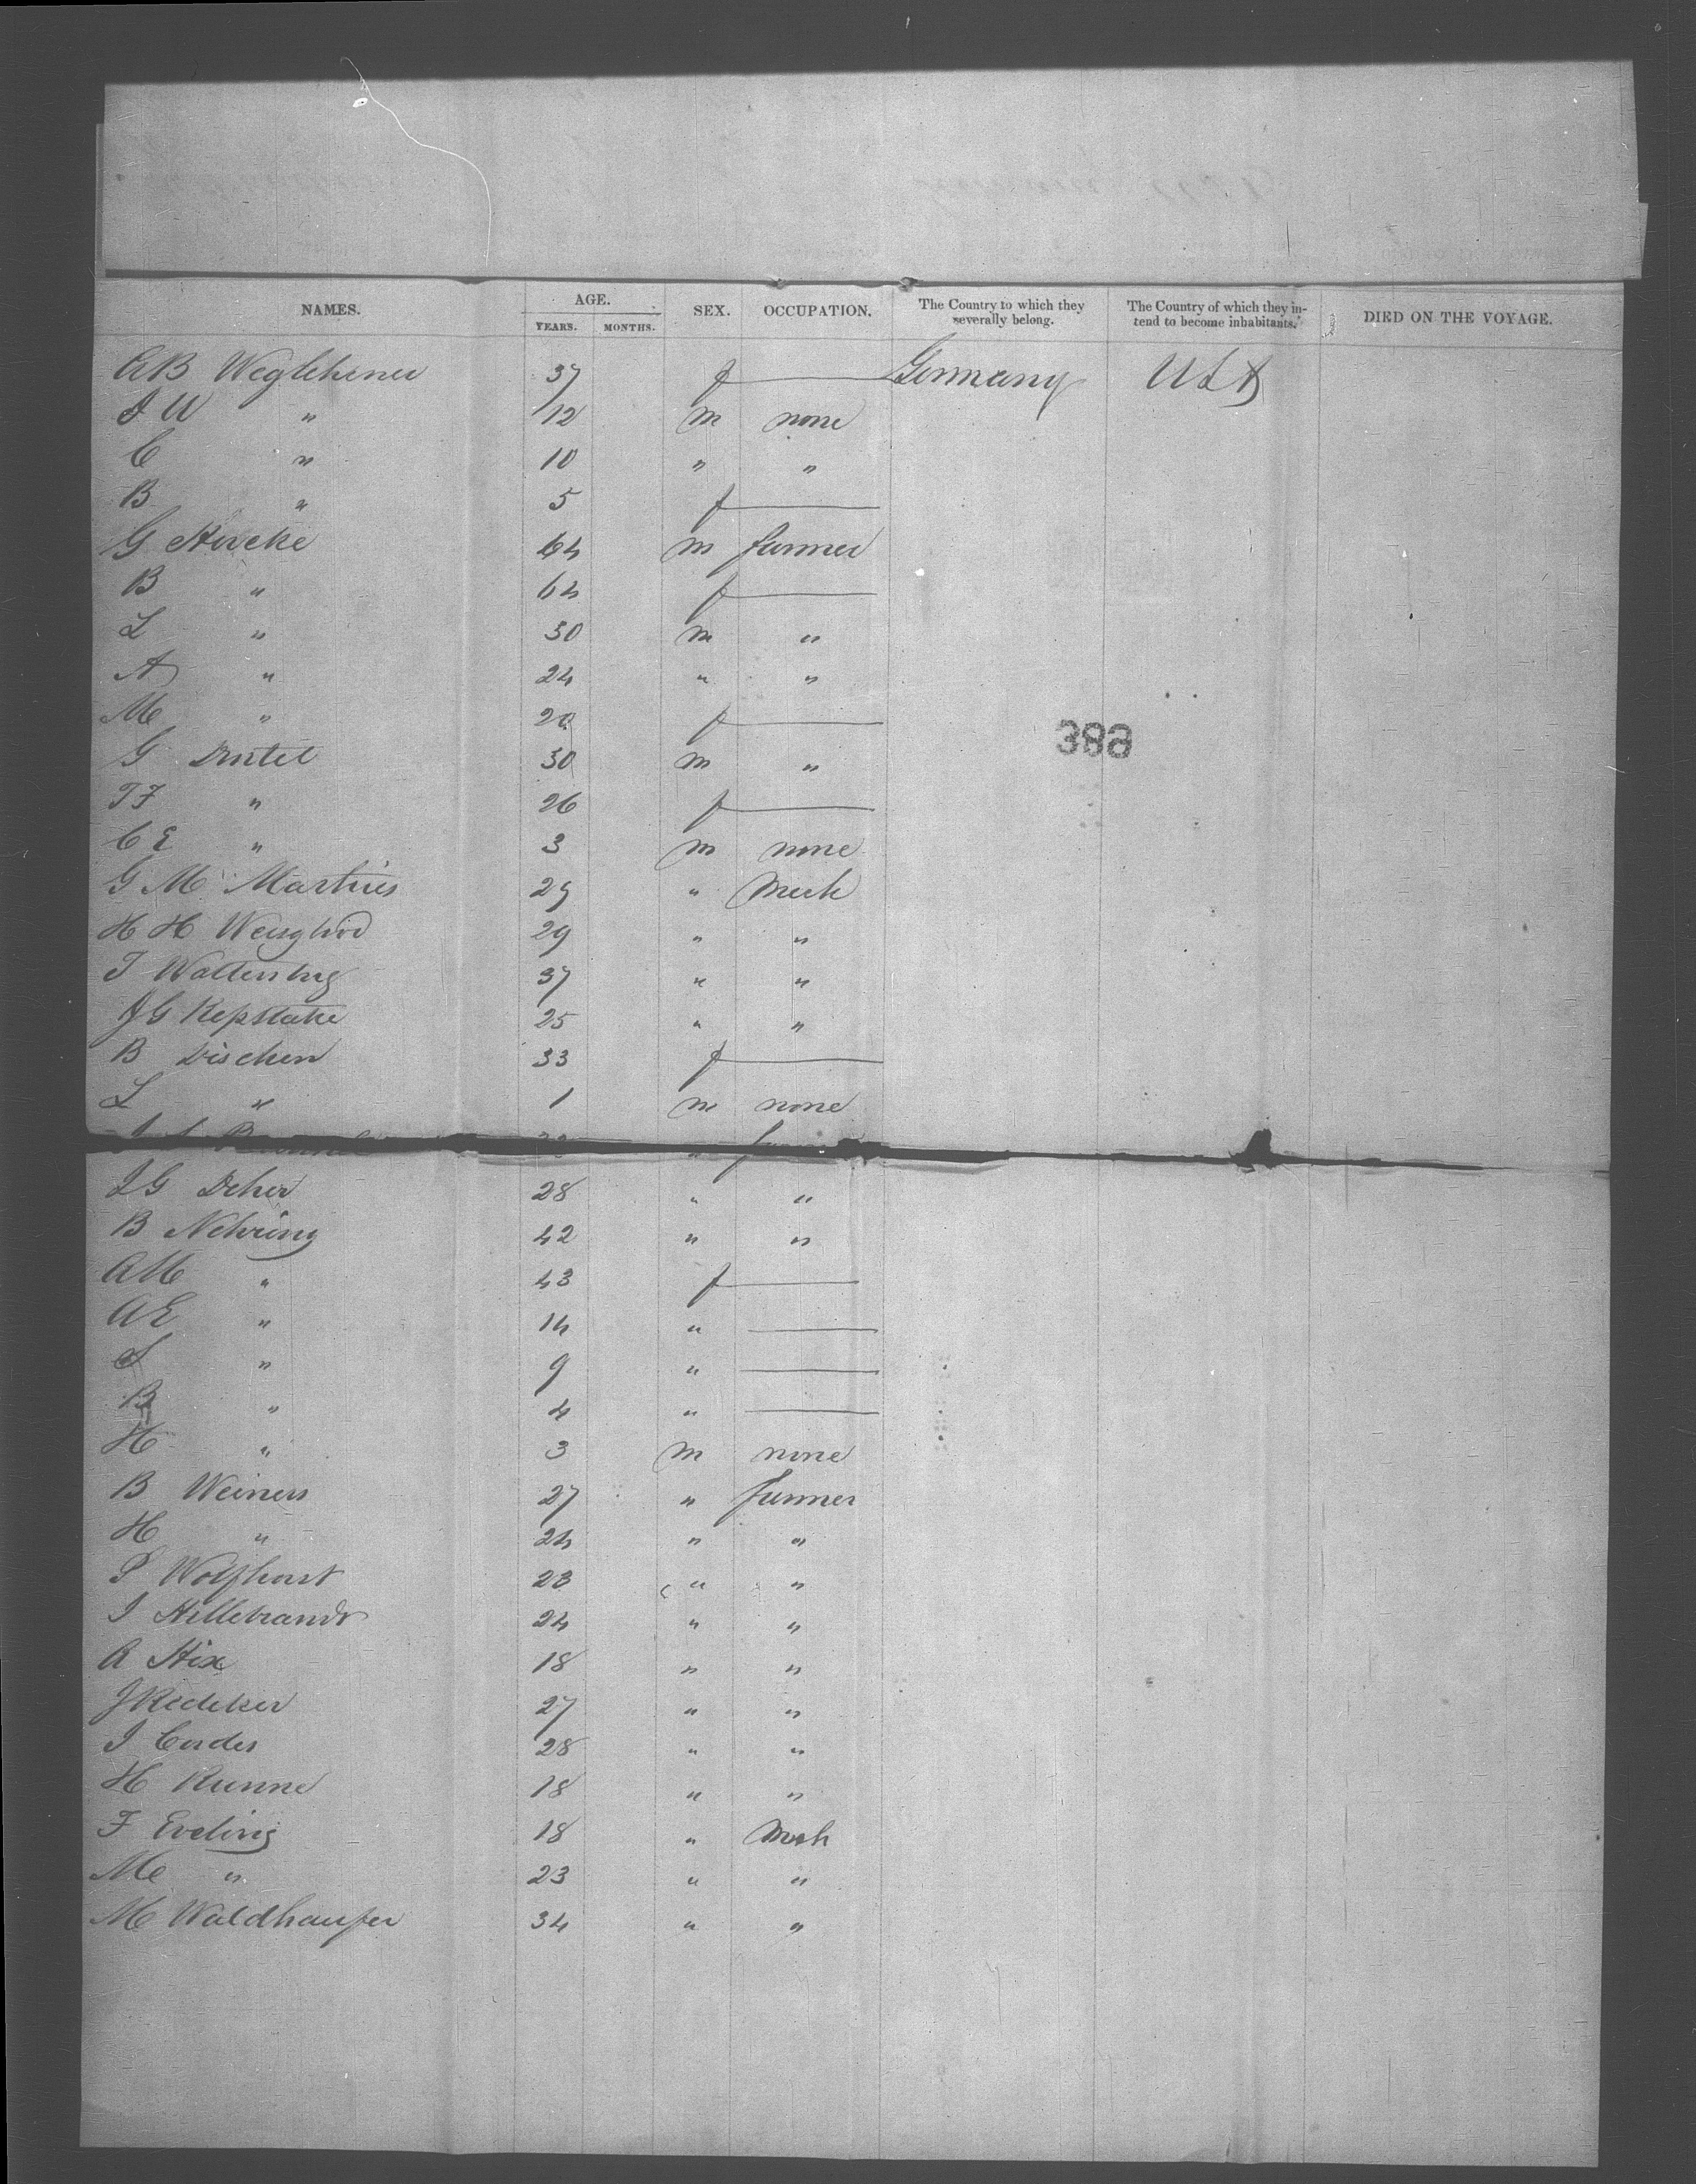 NAMES. AGE. YEARS. MONTHS. SEX. OCCUPATION. The Country to which they severally belong. The Country of which they intend to become inhabitants. DIED ON THE VOYAGE.
AB 37 f Germany USA
J W " 12 m none
C " 10 " "
B " 5 f
G 64 m farmer
B " 64 f
L " 30 m "
A " 24 " "
M " 20 f
G 30 m "
T F " 26 f
C E " 3 m none
G M Martins 29 " Mech
H H 29 " "
T Wattenberg 37 " "
J G 25 " "
B Dischen 33 f
L " 1 m none
J G Deher 28 " "
B Nehring 42 " "
AM " 43 f
AE " 14 "
S " 9 "
B " 4 "
H " 3 m none
B Weiners 27 " farmer
H " 24 " "
P Wolfhorst 23 " "
J Hillebrandt 24 " "
A Hix 18 " "
J Redeker 27 " "
J Cordes 28 " "
H Runne 18 " "
F Eveling 18 " Mech
M " 23 " "
M Waldhauser 34 " "
388